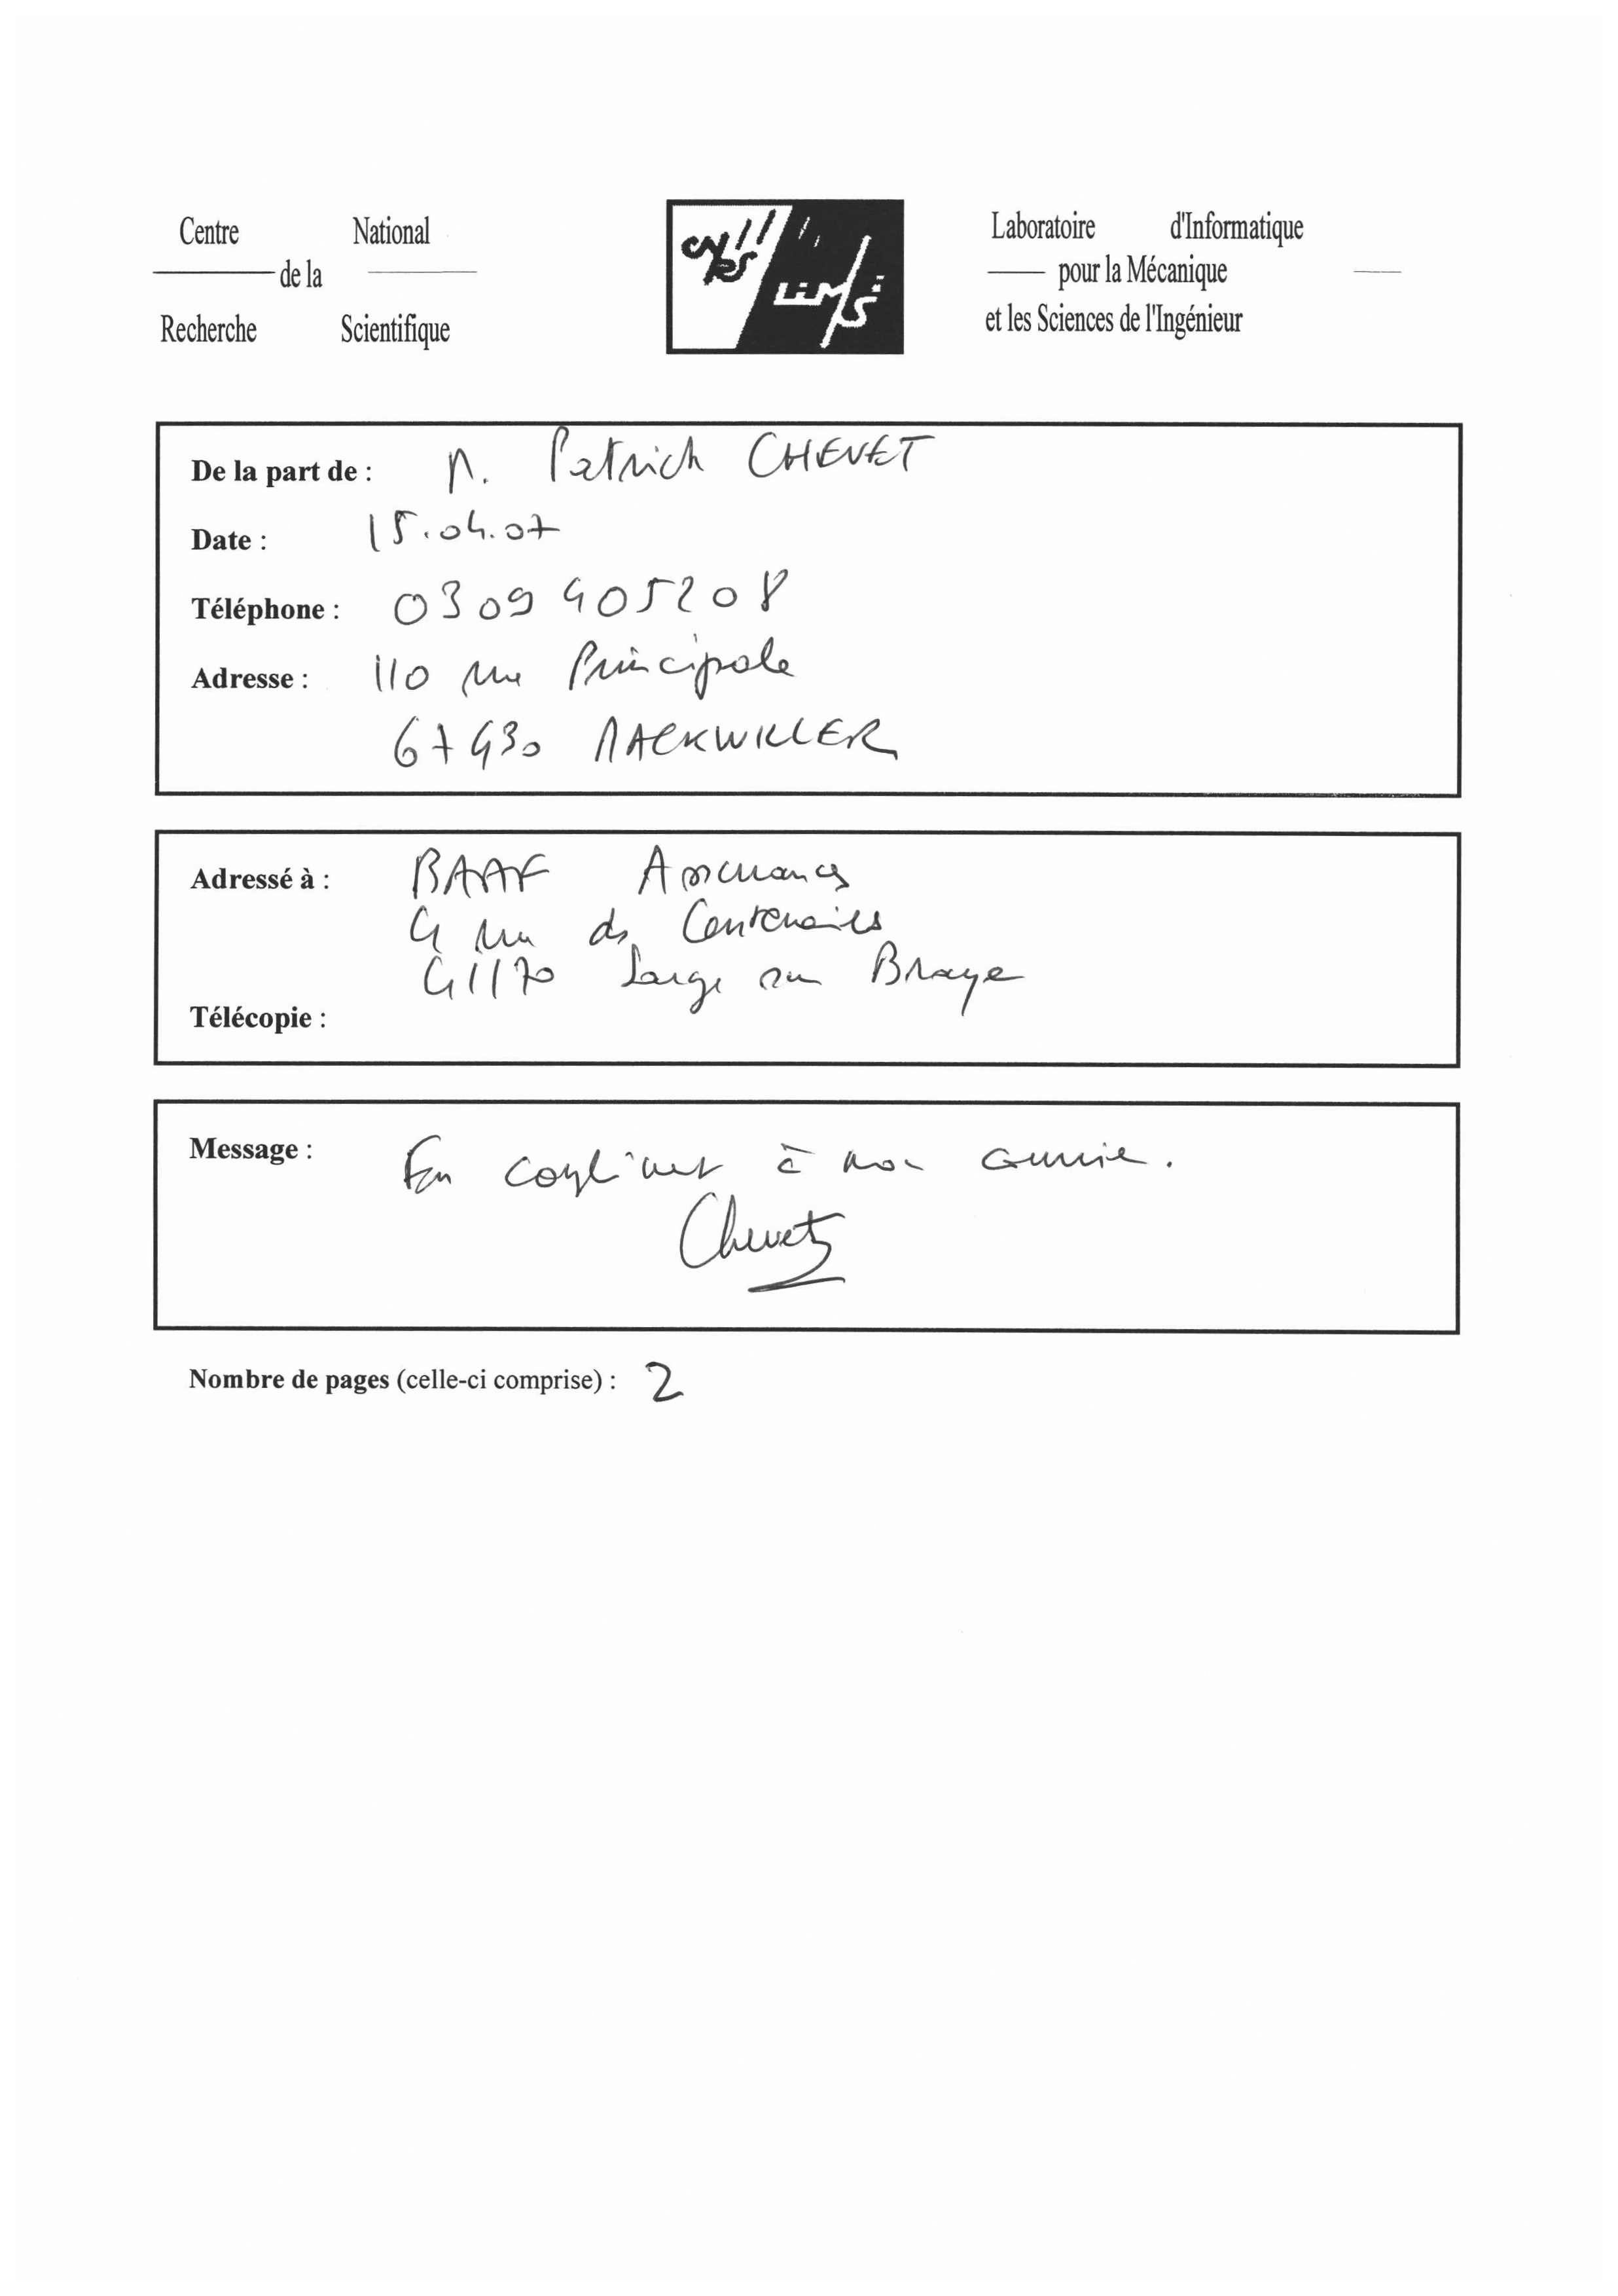 Centre National
de la
Recherche Scientifique
CNRS
LIMSI
Laboratoire d'Informatique
pour la Mécanique
et les Sciences de l'Ingénieur
De la part de : M. Patrick CHEVET
Date : 15.04.07
Téléphone : 0309405208
Adresse : 110 rue Principale
67430 MACKWILLER
Adressé à : BAAF Assurances
4 rue des Centenaires
41170 Sargé sur Braye
Télécopie :
Message : En complément à mon courrier.
Chevet
Nombre de pages (celle-ci comprise) : 2